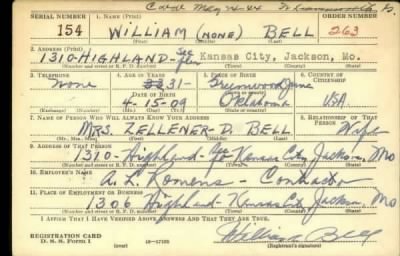 Card May 44 Leavenworth, K.
SERIAL NUMBER 1. NAME (Print) ORDER NUMBER
154 WILLIAM (NONE) BELL 263
(First) (Middle) (Last)
2. ADDRESS (Print)
1310-HIGHLAND- 2nd flr Kansas City, Jackson, Mo.
(Number and street or R. F. D. number) (Town) (County) (State)
3. TELEPHONE 4. AGE IN YEARS 5. PLACE OF BIRTH 6. COUNTRY OF CITIZENSHIP
None 33 31- Greenwood June
DATE OF BIRTH
4-15-09 Oklahoma USA
(Exchange) (No.) (Mo.) (Day) (Yr.) (State or country)
7. NAME OF PERSON WHO WILL ALWAYS KNOW YOUR ADDRESS 8. RELATIONSHIP OF THAT PERSON
MRS. ZELLENER-D. BELL Wife
(Mr., Mrs., Miss) (First) (Middle) (Last)
9. ADDRESS OF THAT PERSON
1310-Highland- Kansas City, Jackson, Mo
(Number and street or R. F. D. number) (Town) (County) (State)
10. EMPLOYER'S NAME
A. L. Romens- Contractor
11. PLACE OF EMPLOYMENT OR BUSINESS
1306 Highland-Kansas City, Jackson, Mo
(Number and street or R. F. D. number) (Town) (County) (State)
I AFFIRM THAT I HAVE VERIFIED ABOVE ANSWERS AND THAT THEY ARE TRUE.
REGISTRATION CARD
D. S. S. Form 1 (over) 16-17105
William Bell
(Registrant's signature)